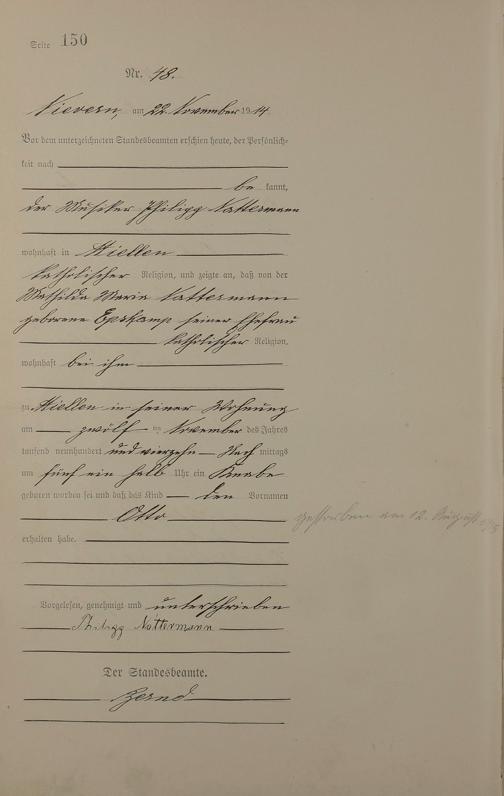 Seite 150
Nr. 48.
Nievern, am 22. November 1914.
Vor dem unterzeichneten Standesbeamten erschien heute, der Persönlich-
keit nach
be kannt,
der Musiker Philipp Nattermann
wohnhaft in Miellen
katholischer Religion, und zeigte an, daß von der
Mathilda Maria Nattermann
geborene Epskamp seiner Ehefrau
katholischer Religion,
wohnhaft bei ihm
zu Miellen in seiner Wohnung
am zwölf ten November des Jahres
tausend neunhundert und vierzehn Nach mittags
um fünf ein halb Uhr ein Knabe
geboren worden sei und daß das Kind den Vornamen
Otto
gestorben am 12. August
erhalten habe.
Vorgelesen, genehmigt und unterschrieben
Philipp Nattermann
Der Standesbeamte.